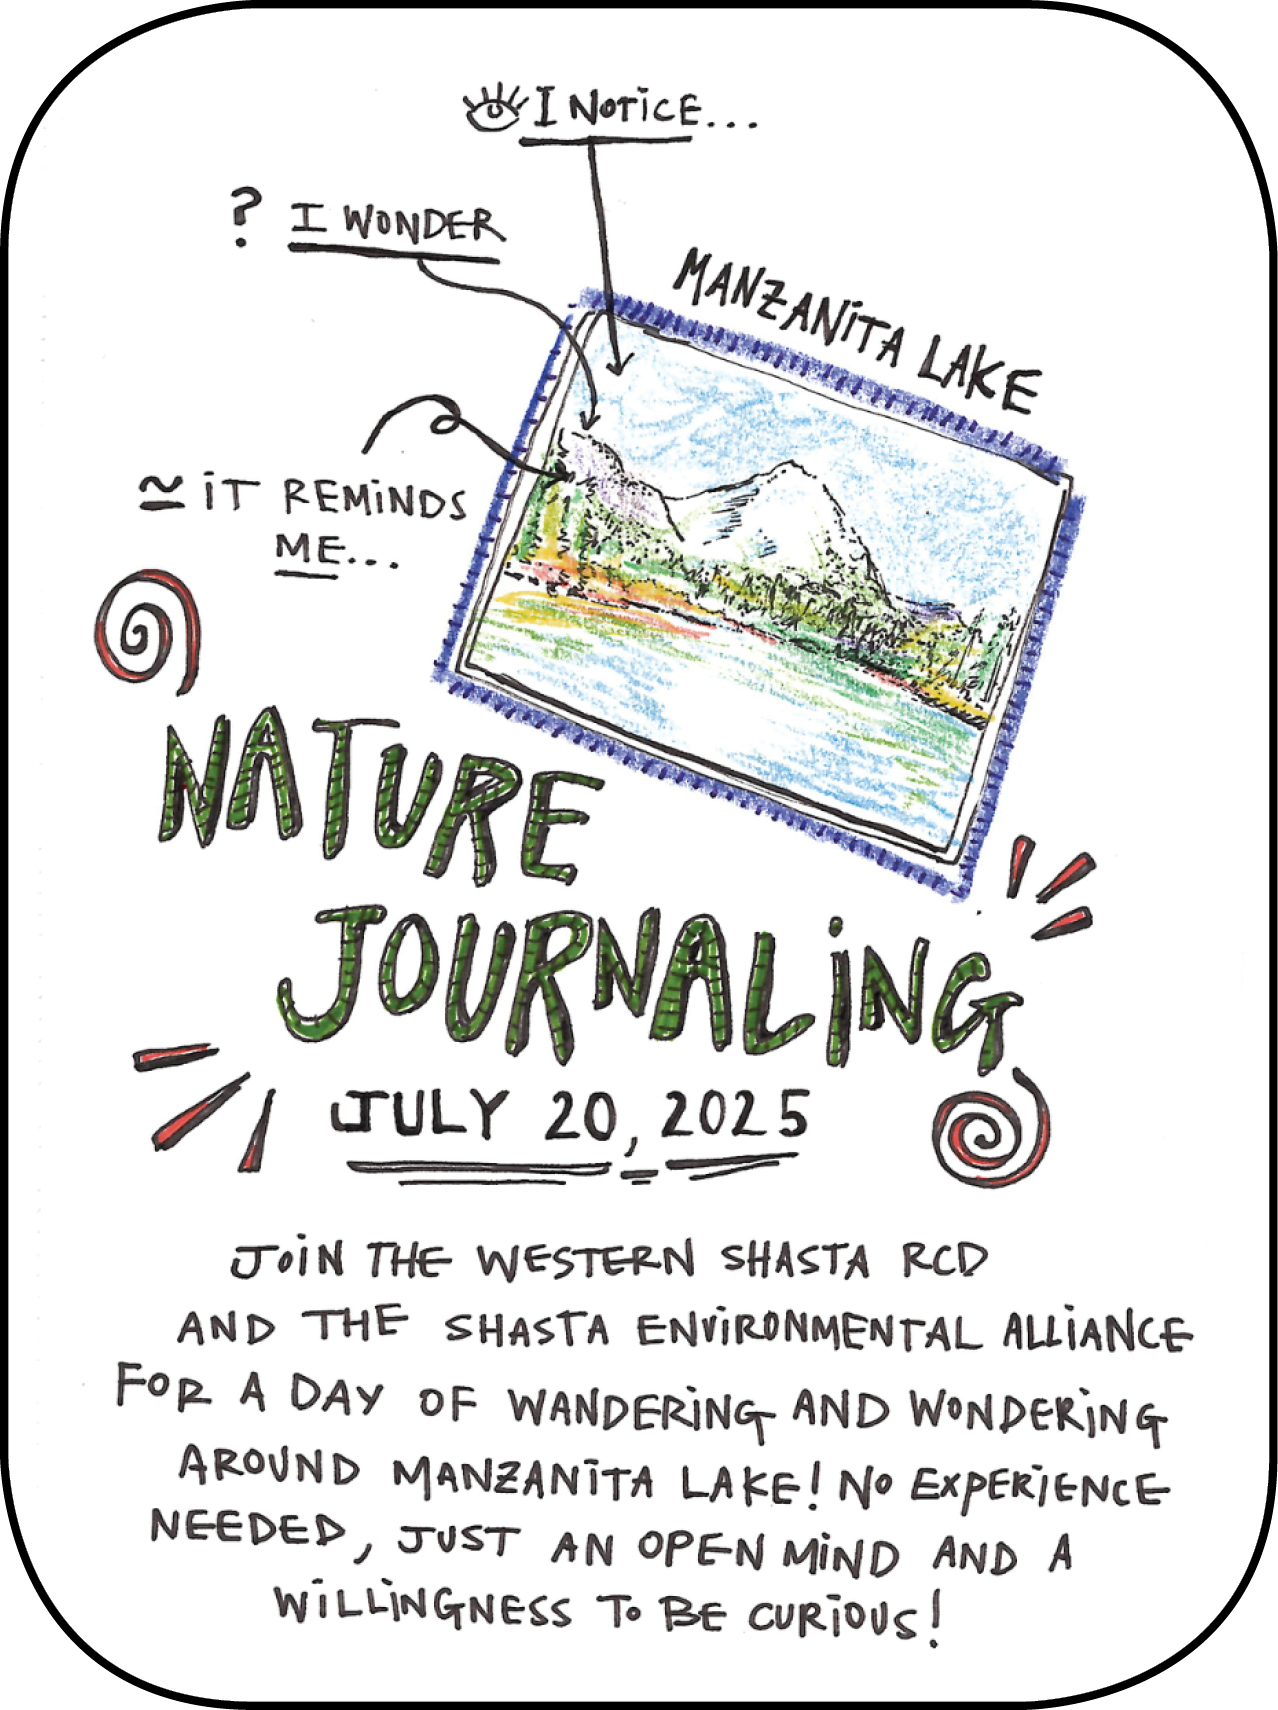 I NOTICE...
? I WONDER
MANZANITA LAKE
≃ IT REMINDS
ME...
NATURE
JOURNALING
JULY 20, 2025
JOIN THE WESTERN SHASTA RCD
AND THE SHASTA ENVIRONMENTAL ALLIANCE
FOR A DAY OF WANDERING AND WONDERING
AROUND MANZANITA LAKE! NO EXPERIENCE
NEEDED, JUST AN OPEN MIND AND A
WILLINGNESS TO BE CURIOUS!